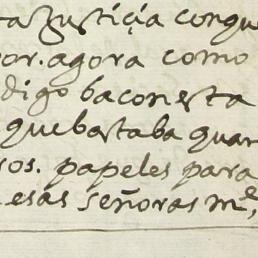 ta Justiçia conque
por. agora como
digo baconesta
quebastaba quan
ros. papeles para
esas señoras me,